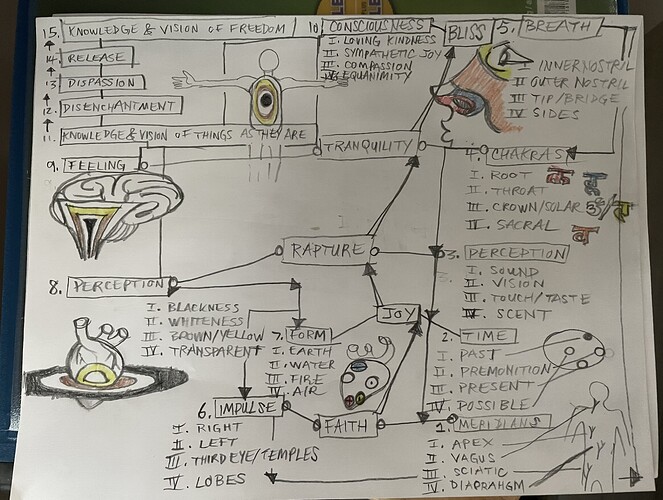 15. KNOWLEDGE & VISION OF FREEDOM
14. RELEASE
13 DISPASSION
12. DISENCHANTMENT
11. KNOWLEDGE & VISION OF THINGS AS THEY ARE
10. CONSCIOUSNESS
I. LOVING KINDNESS
II. SYMPATHETIC JOY
III. COMPASSION
IV. EQUANIMITY
BLISS
5. BREATH
I INNER NOSTRIL
II OUTER NOSTRIL
III TIP/BRIDGE
IV SIDES
TRANQUILITY
9. FEELING
4. CHAKRAS
I. ROOT
II. THROAT
III. CROWN/SOLAR
IV. SACRAL
RAPTURE
3. PERCEPTION
I. SOUND
II. VISION
III. TOUCH/TASTE
IV. SCENT
8. PERCEPTION
I. BLACKNESS
II. WHITENESS
III. BROWN/YELLOW
IV. TRANSPARENT
JOY
7. FORM
I. EARTH
II. WATER
III. FIRE
IV. AIR
2. TIME
I. PAST
II. PREMONITION
III. PRESENT
IV. POSSIBLE
6. IMPULSE
I. RIGHT
II. LEFT
III. THIRD EYE/TEMPLES
IV. LOBES
FAITH
1. MERIDIANS
I. APEX
II. VAGUS
III. SCIATIC
IV. DIAPRAHGM